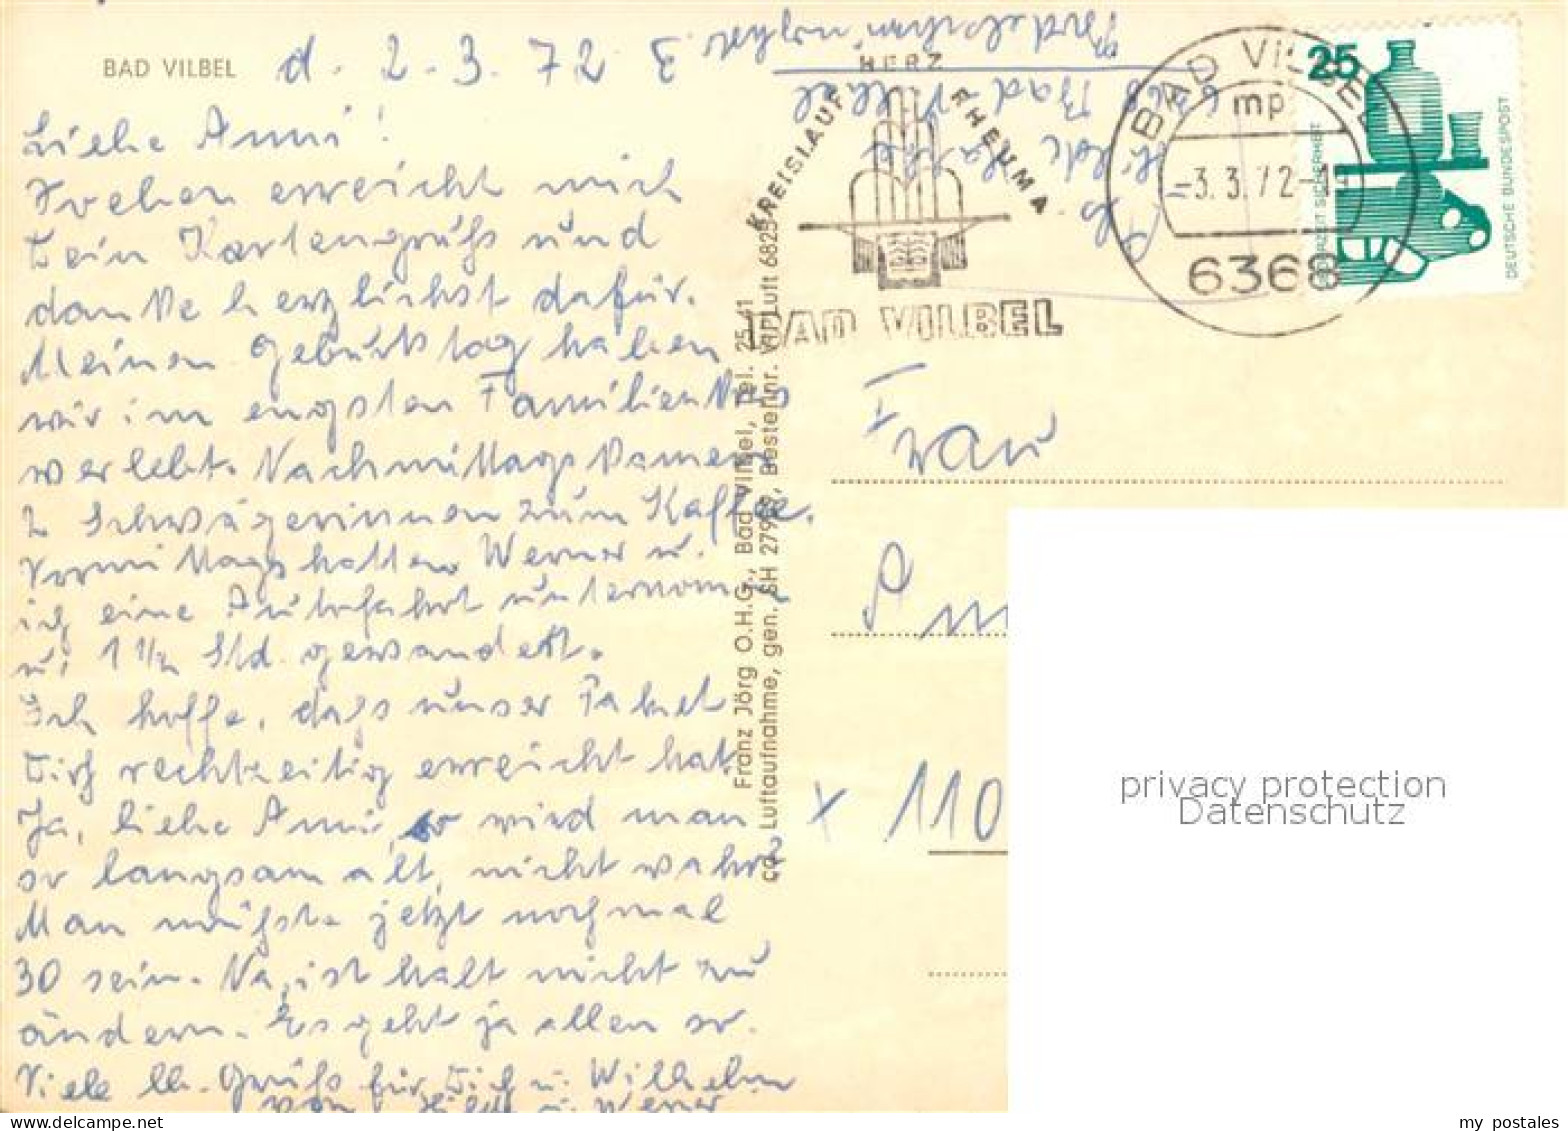 BAD VILBEL d. 2.3.72
Liebe Anni!
Soeben erreicht mich
Dein Kartengruß und
danke herzlichst dafür.
Meinen Geburtstag haben
wir im engsten Familienkreis
verlebt. Nachmittags kamen
2 Schwägerinnen zum Kaffee.
Vormittags hatten Werner u.
ich eine Autofahrt unternom.
u. 1 1/2 Std. gewandert.
Ich hoffe, dass unser Paket
Dich rechtzeitig erreicht hat.
Ja, liebe Anni, so wird man
so langsam alt, nicht wahr?
Man müsste jetzt nochmal
30 sein. Na, ist halt nicht zu
ändern. Es geht ja allen so.
Viele lb. Grüß für Dich u. Wilhelm
von Hilde u. Werner
Abs. Hilde
6368 Bad Vilbel
Franz Jörg O.H.G., Bad Vilbel, Tel. 25 41
Luftaufnahme, gen.
HERZ
KREISLAUF
RHEUMA
BAD VILBEL
BAD VILBEL
mp
-3.3.72-
6368
25
DEUTSCHE BUNDESPOST
Frau
110
privacy protection
Datenschutz
my postales